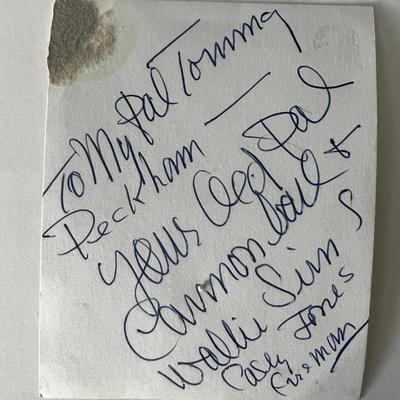 To My Pal Tommy
Peckham —
Your Old Pal
Cannon ball
Wallie Sims
Casey Jones
Fireman